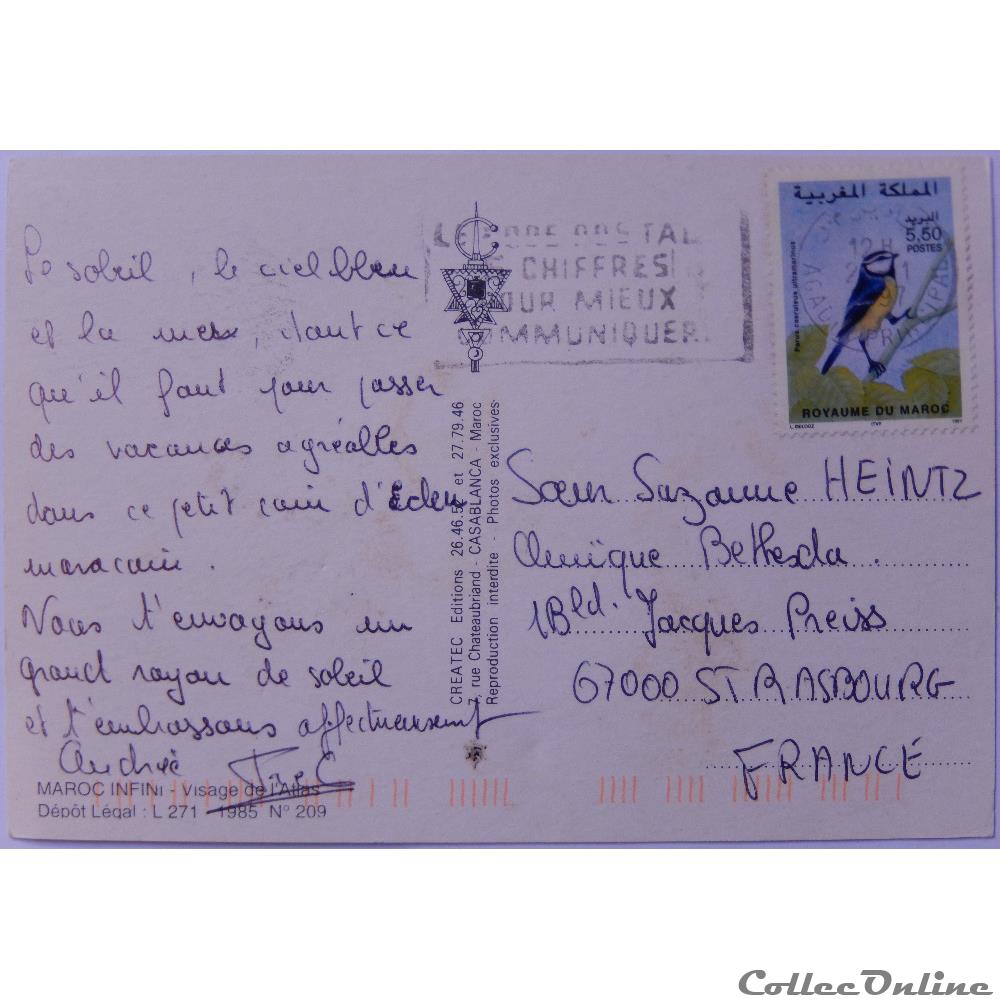 Le soleil, le ciel bleu
et la mer, tout ce
qu'il faut pour passer
des vacances agréables
dans ce petit coin d'Eden
marocain.
Nous t'envoyons un
grand rayon de soleil
et t'embrassons affectueusement
Andrée
MAROC INFINI - Visage de l'Atlas
Dépôt Légal : L 271 - 1985 N° 209
CREATEC Editions 26.46.5 et 27.79.46
7, rue Chateaubriand - CASABLANCA - Maroc
Reproduction interdite - Photos exclusives
POSTAL
CHIFFRES
MIEUX
COMMUNIQUER
المملكة المغربية
البريد
5.50
POSTES
12 H
Parus caeruleus ultramarinus
ROYAUME DU MAROC
Sœur Suzanne HEINTZ
Clinique Bethesda.
1Bld. Jacques Preiss
67000 STRASBOURG
FRANCE
CollecOnline